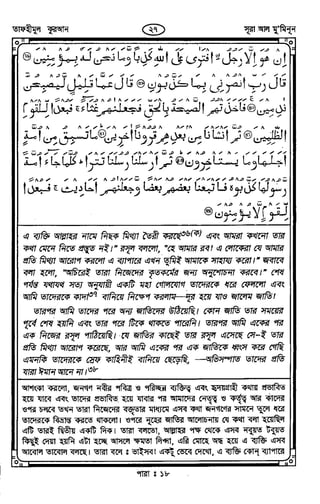 তাফহীমুল কুরআন ২৭ সূরা আল মু'মিনূন
إِنْ هُوَ إِلَّا رَجُلُ افْتَرَىٰ عَلَى اللَّهِ كَذِبًا وَمَا نَحْنُ لَهُ بِمُؤْمِنِينَ ۝
قَالَ رَبِّ انْصُرْنِي بِمَا كَذَّبُونِ ۝ قَالَ عَمَّا قَلِيلٍ لَيُصْبِحُنَّ
نٰدِمِينَ ۝ فَأَخَذَتْهُمُ الصَّيْحَةُ بِالْحَقِّ فَجَعَلْنٰهُمْ غُثَاءً ۚ فَبُعْدًا لِلْقَوْمِ
الظّٰلِمِينَ ۝ ثُمَّ أَنْشَأْنَا مِنْ بَعْدِهِمْ قُرُونًا آخَرِينَ ۝ مَا تَسْبِقُ مِنْ أُمَّةٍ
أَجَلَهَا وَمَا يَسْتَأْخِرُونَ ۝ ثُمَّ أَرْسَلْنَا رُسُلَنَا تَتْرَا ۖ كُلَّمَا جَاءَ أُمَّةً
رَسُولُهَا كَذَّبُوهُ فَأَتْبَعْنَا بَعْضَهُمْ بَعْضًا وَجَعَلْنٰهُمْ أَحَادِيثَ ۚ فَبُعْدًا
لِقَوْمٍ لَا يُؤْمِنُونَ ۝
এ ব্যক্তি আল্লাহর নামে নিছক মিথ্যা তৈরী করছে৩৬(ক) এবং আমরা কখনো তার
কথা মেনে নিতে প্রস্তুত নই।" রসূল বললো, "হে আমার রব! এ লোকেরা যে আমার
প্রতি মিথ্যা আরোপ করলো এ ব্যাপারে এখন তুমিই আমাকে সাহায্য করো।" জবাবে
বলা হলো, "অচিরেই তারা নিজেদের কৃতকর্মের জন্য অনুশোচনা করবে।" শেষ
পর্যন্ত যথাযথ সত্য অনুযায়ী একটি মহা গোলযোগ তাদেরকে ধরে ফেললো এবং
আমি তাদেরকে কাদা৩৭ বানিয়ে নিক্ষেপ করলাম—দূর হয়ে যাও জালেম জাতি!
তারপর আমি তাদের পরে অন্য জাতিদের উঠিয়েছি। কোন জাতি তার সময়ের
পূর্বে শেষ হয়নি এবং তার পরে টিকে থাকতে পারেনি। তারপর আমি একের পর
এক নিজের রসূল পাঠিয়েছি। যে জাতির কাছেই তার রসূল এসেছে সে-ই তার
প্রতি মিথ্যা আরোপ করেছে, আর আমি একের পর এক জাতিকে ধ্বংস করে গেছি
এমনকি তাদেরকে স্রেফ কাহিনীই বানিয়ে ছেড়েছি, —অভিসম্পাত তাদের প্রতি
যারা ঈমান আনে না।৩৮
আশংকা করলো, জনগণ নবীর পবিত্র ও পরিচ্ছন্ন ব্যক্তিত্ব এবং হৃদয়গ্রাহী কথায় প্রভাবিত
হয়ে যাবে এবং তাদের প্রভাবিত হয়ে যাবার পর আমাদের নেতৃত্ব ও কর্তৃত্ব আর কাদের
ওপর চলবে তখন তারা নিজেদের বক্তৃতার মাধ্যমে এসব কথা জনগণের সামনে তুলে ধরে
তাদেরকে বিভ্রান্ত করতে থাকলো। ওপরে নূহের জাতির আলোচনায় যে কথা বলা হয়েছিল
এটি তারই দ্বিতীয় একটি দিক। তারা বলতো, আল্লাহর পক্ষ থেকে এসব নবুওয়ত টবুওয়ত
কিছুই দেয়া হয়নি এটা হচ্ছে আসলে ক্ষমতা লিপ্সা, এরি মোহে অন্ধ হয়ে এ ব্যক্তি এসব
আবোল তাবোল বলছে। তারা বলে : ভাইসব! একটু ভেবে দেখো, এ ব্যক্তি কোন্ ব্যাপারে
পারা : ১৮